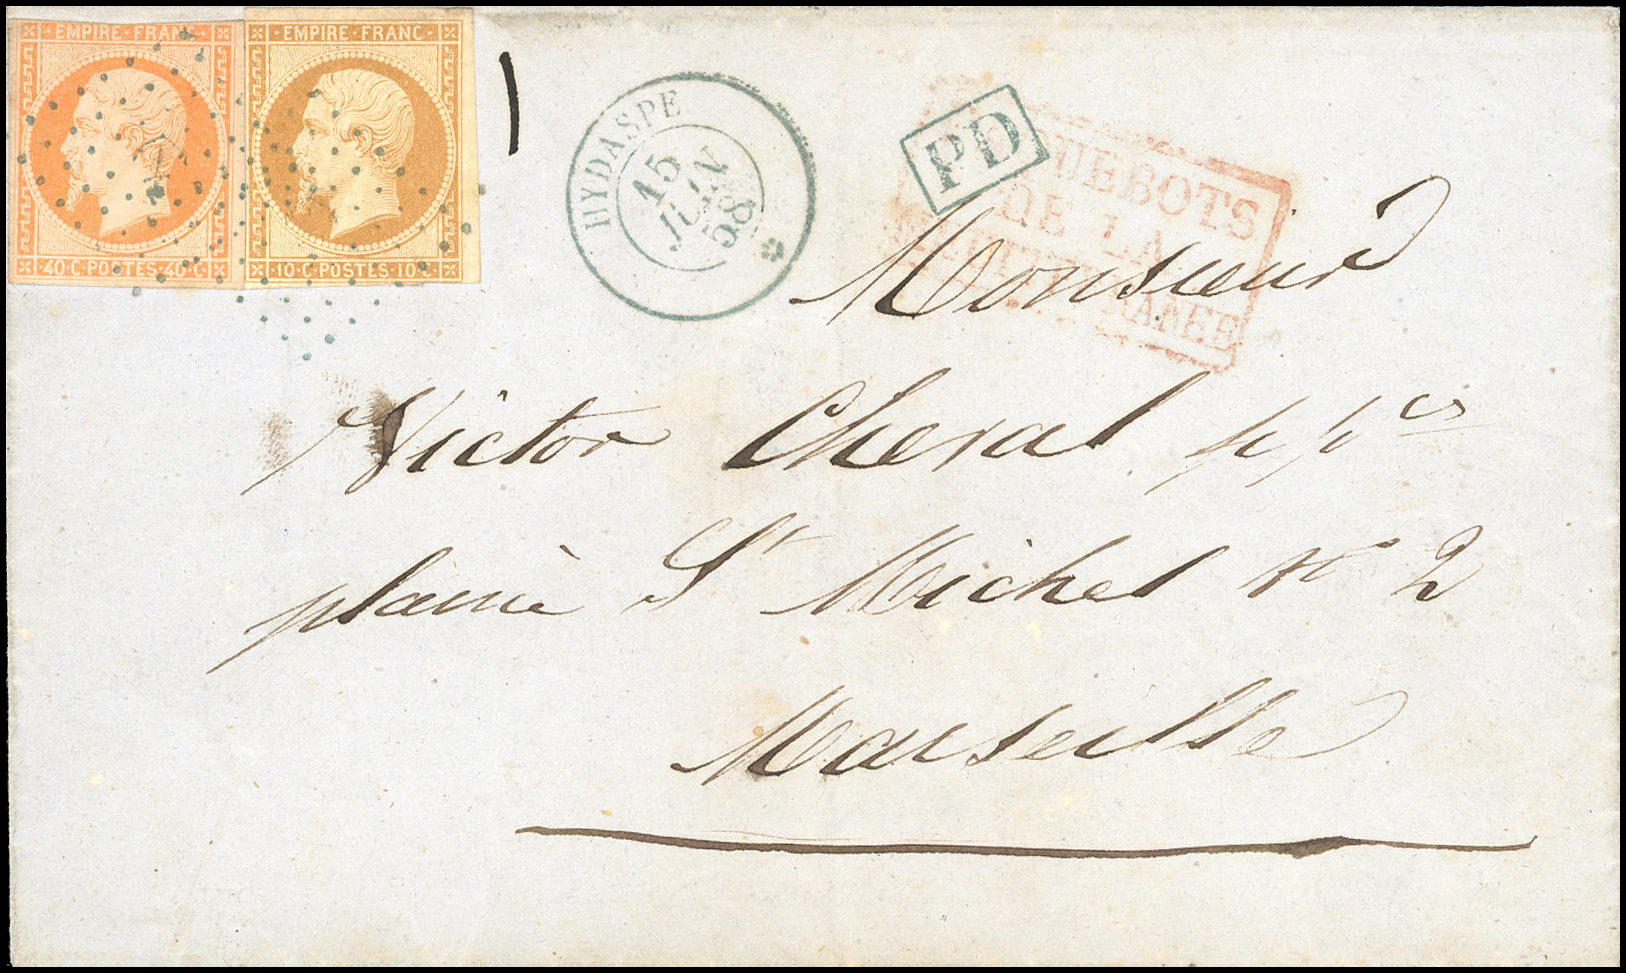 EMPIRE · FRANC ·
40 · C · POSTES · 40 · C ·
EMPIRE · FRANC ·
10 · C · POSTES · 10 · C
1
HYDASPE
15
JUIN
58
PD
QUEBOTS
DE LA
Monsieur
Victor Cheval
plaine St Michel no 2
Marseille